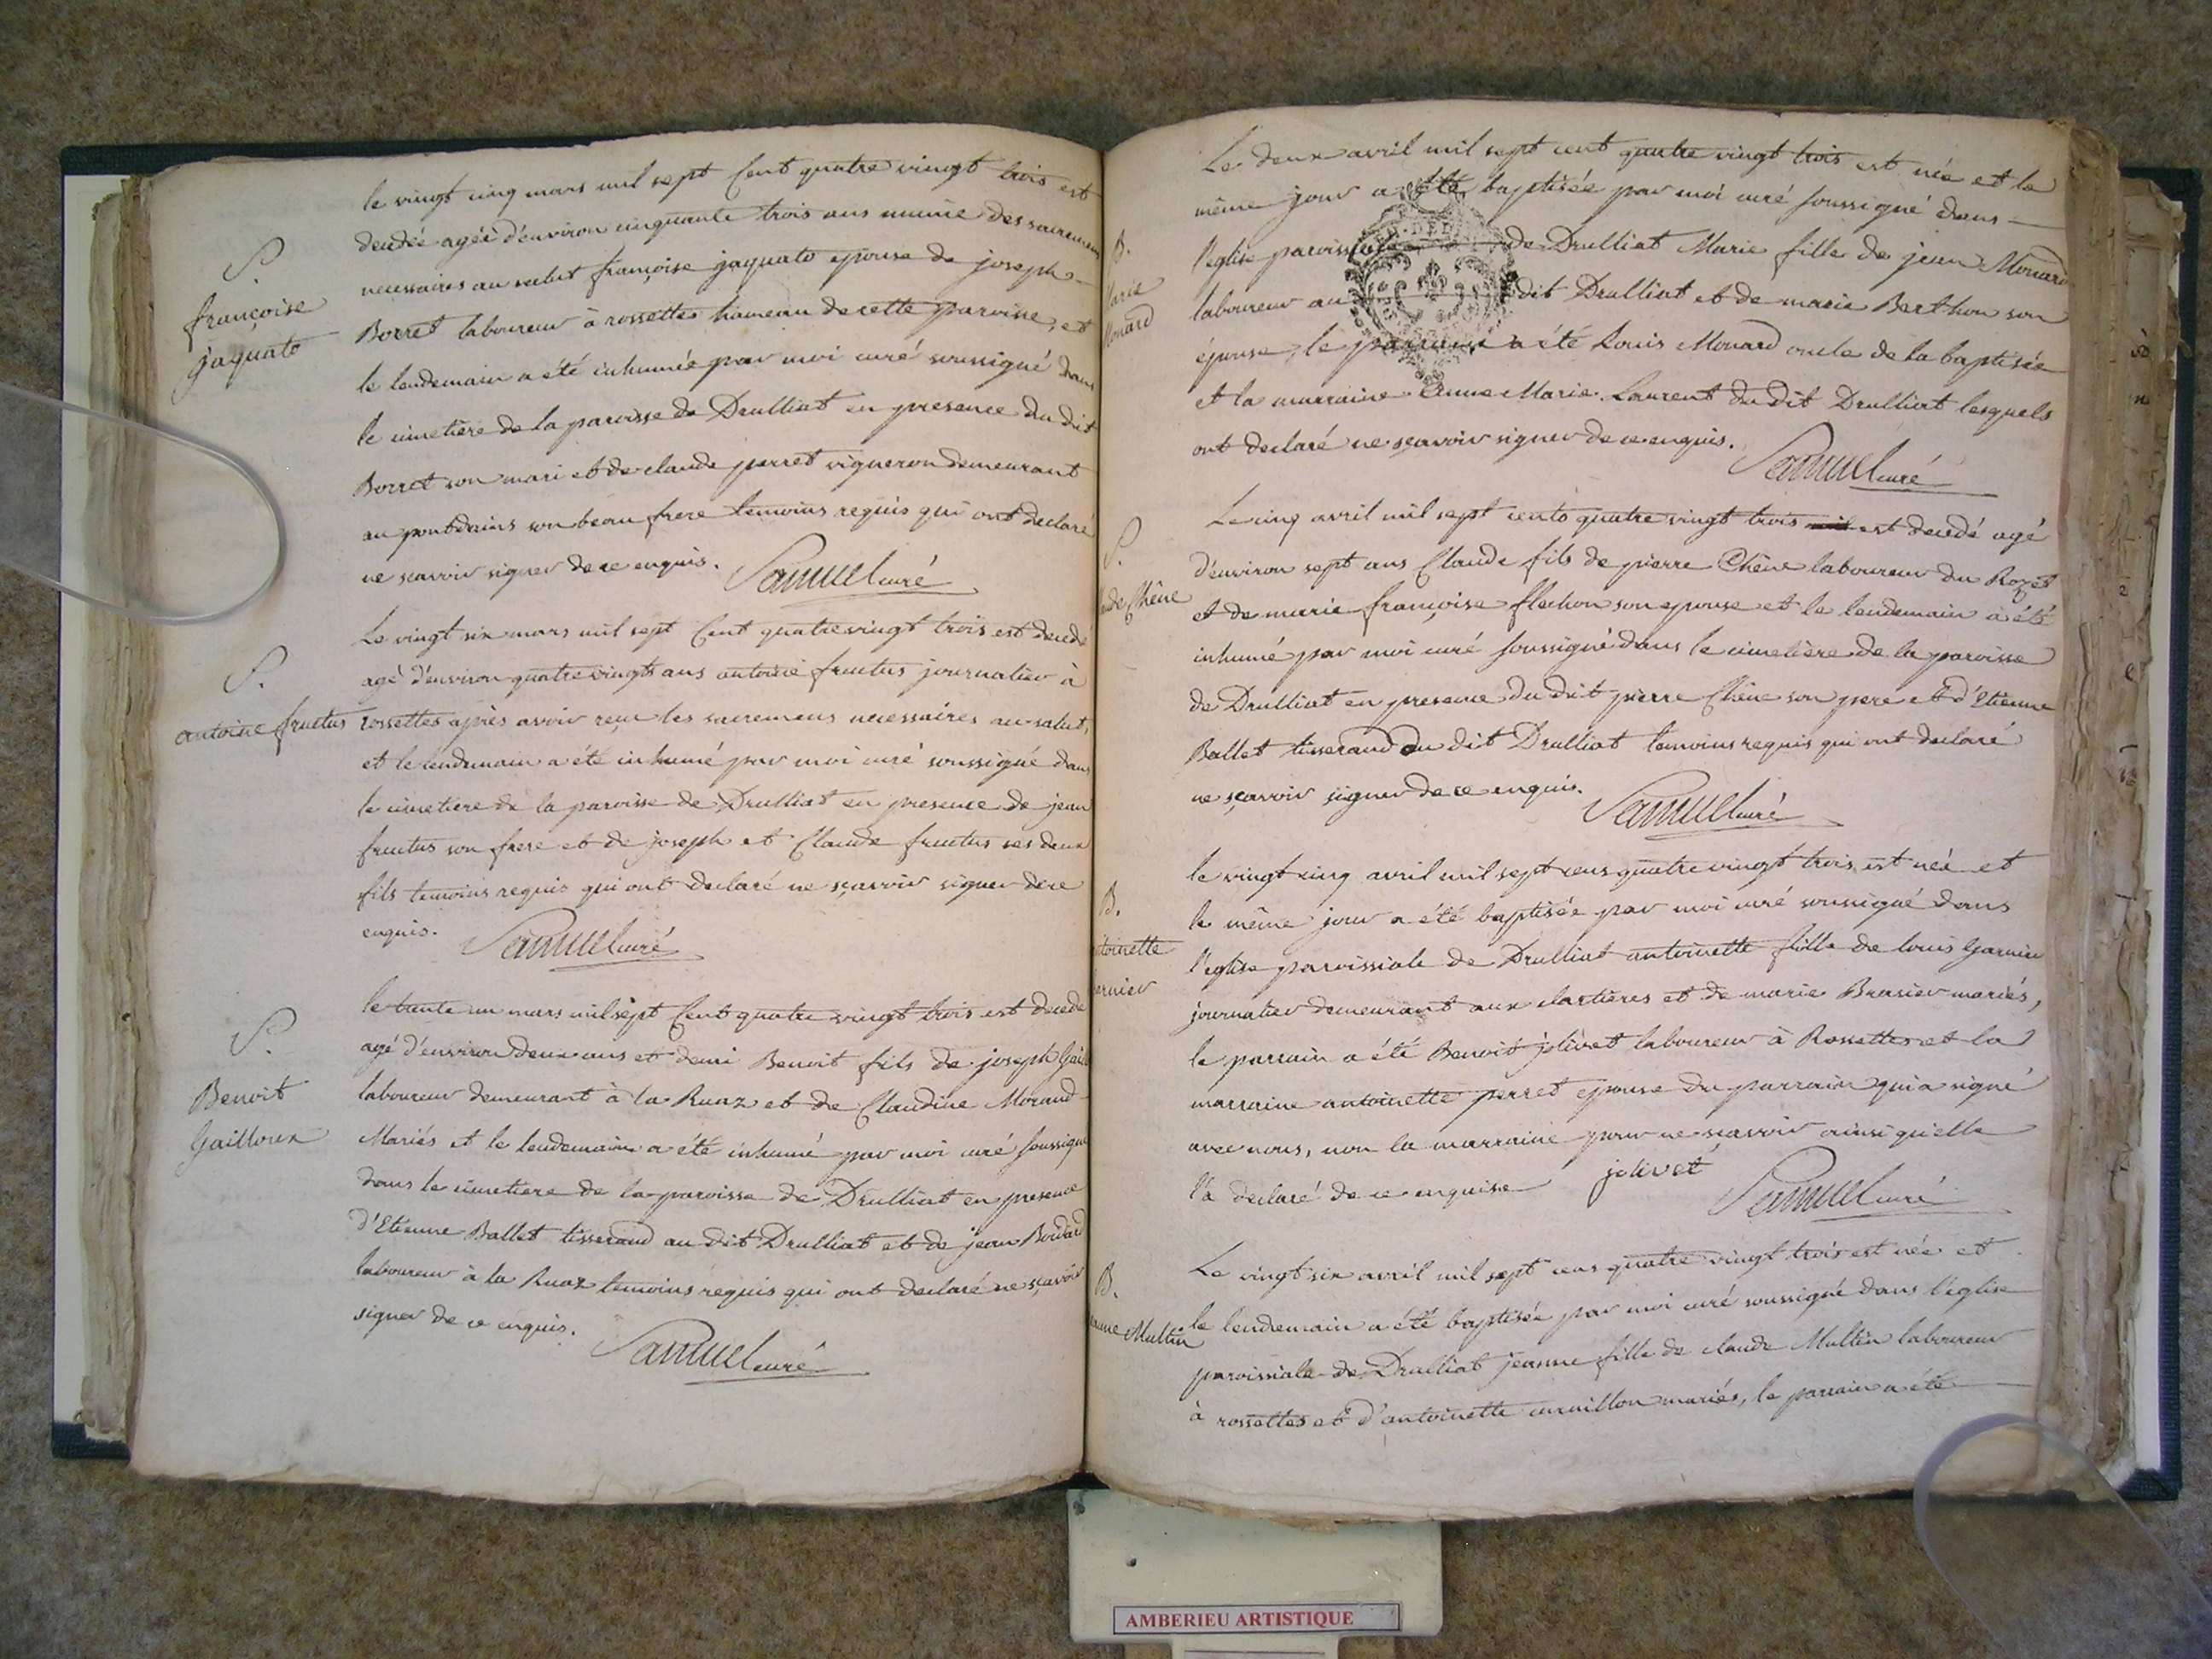 S.
françoise
jaquato
le vingt cinq mars mil sept Cent quatre vingt trois est
decedée agéé d'environ cinquante trois ans munie des sacremens
necessaires au salut françoise jaquato epouse de joseph
Borret laboureur à rossettes hameau de cette paroisse, et
le lendemain a été inhumée par moi curé soussigné dans
le cimetière de la paroisse de Drulliat en presence du dit
Borret son mari et de claude perret vigneron demeurant
au pontdains son beau frere temoins requis qui ont declaré
ne sçavoir signer de ce enquis. Samuel curé
S.
antoine fructus
Le vingt six mars mil sept Cent quatre vingt trois est decedé
agé d'environ quatre vingts ans antoine fructus journalier à
rossettes après avoir reçu les sacremens necessaires au salut,
et le lendemain a été inhumé par moi curé soussigné dans
le cimetiere de la paroisse de Drulliat en presence de jean
fructus son frere et de joseph et Claude fructus ses deux
fils temoins requis qui ont declaré ne sçavoir signer de ce
enquis. Samuel curé
S.
Benoit
Gailloux
le trente un mars mil sept Cent quatre vingt trois est decedé
agé d'environ deux ans et demi Benoit fils de joseph
laboureur demeurant à la Ruaz et de Claudine Morand
Mariés et le lendemain a été inhumé par moi curé soussigné
dans le cimetiere de la paroisse de Drulliat en presence
d'Etienne Ballet tisserand au dit Drulliat et de jean
laboureur à la Ruaz temoins requis qui ont declaré ne sçavoir
signer de ce enquis.
Samuel curé
B.
Marie
Monard
Le deux avril mil sept cent quatre vingt trois est née et le
même jour a été baptisée par moi curé soussigné dans
l'eglise paroissiale de Drulliat Marie fille de jean Monard
laboureur au dit Drulliat et de marie Berthon son
épouse, le parrain a été Louis Monard oncle de la baptisée
et la marraine Anne Marie Laurent du dit Drulliat lesquels
ont declaré ne sçavoir signer de ce enquis.
Samuel curé
S.
aude Chêne
Le cinq avril mil sept cents quatre vingt trois est decedé agé
d'environ sept ans Claude fils de pierre Chêne laboureur du Rozet
et de marie françoise flechon son epouse et le lendemain a été
inhumé par moi curé soussigné dans le cimetière de la paroisse
de Drulliat en presence du dit pierre Chêne son pere et d'Etienne
Ballet tisserand du dit Drulliat temoins requis qui ont declaré
ne sçavoir signer de ce enquis.
Samuel curé
B.
toinette
ernier
le vingt cinq avril mil sept cens quatre vingt trois est née et
le même jour a été baptisée par moi curé soussigné dans
l'eglise paroissiale de Drulliat antoinette fille de louis
journalier demeurant aux clartières et de marie Brasier mariés,
le parrain a été Benoit jolivet laboureur à Rossettes et la
marraine antoinette perret epouse du parrain qui a signé
avec nous, non la marraine pour ne sçavoir ainsi qu'elle
l'a declaré de ce enquise jolivet Samuel curé
B.
anne Multin
Le vingt six avril mil sept cens quatre vingt trois est née et
le lendemain a été baptisée par moi curé soussigné dans l'église
paroissiale de Drulliat jeanne fille de claude Multin laboureur
à rossettes et d'antoinette mariés, le parrain a été
AMBERIEU ARTISTIQUE